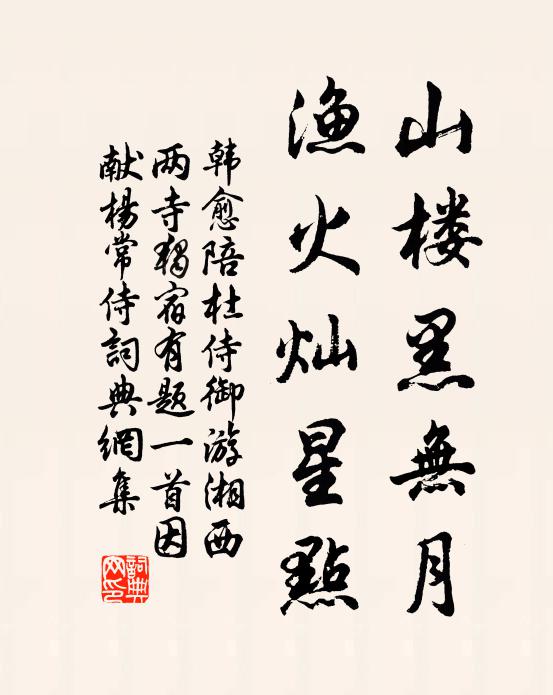 山楼黑無月
渔火灿星點
韩愈陪杜侍御游湘西
两寺独宿有题一首因
献楊常侍詞典網集
詞典网印